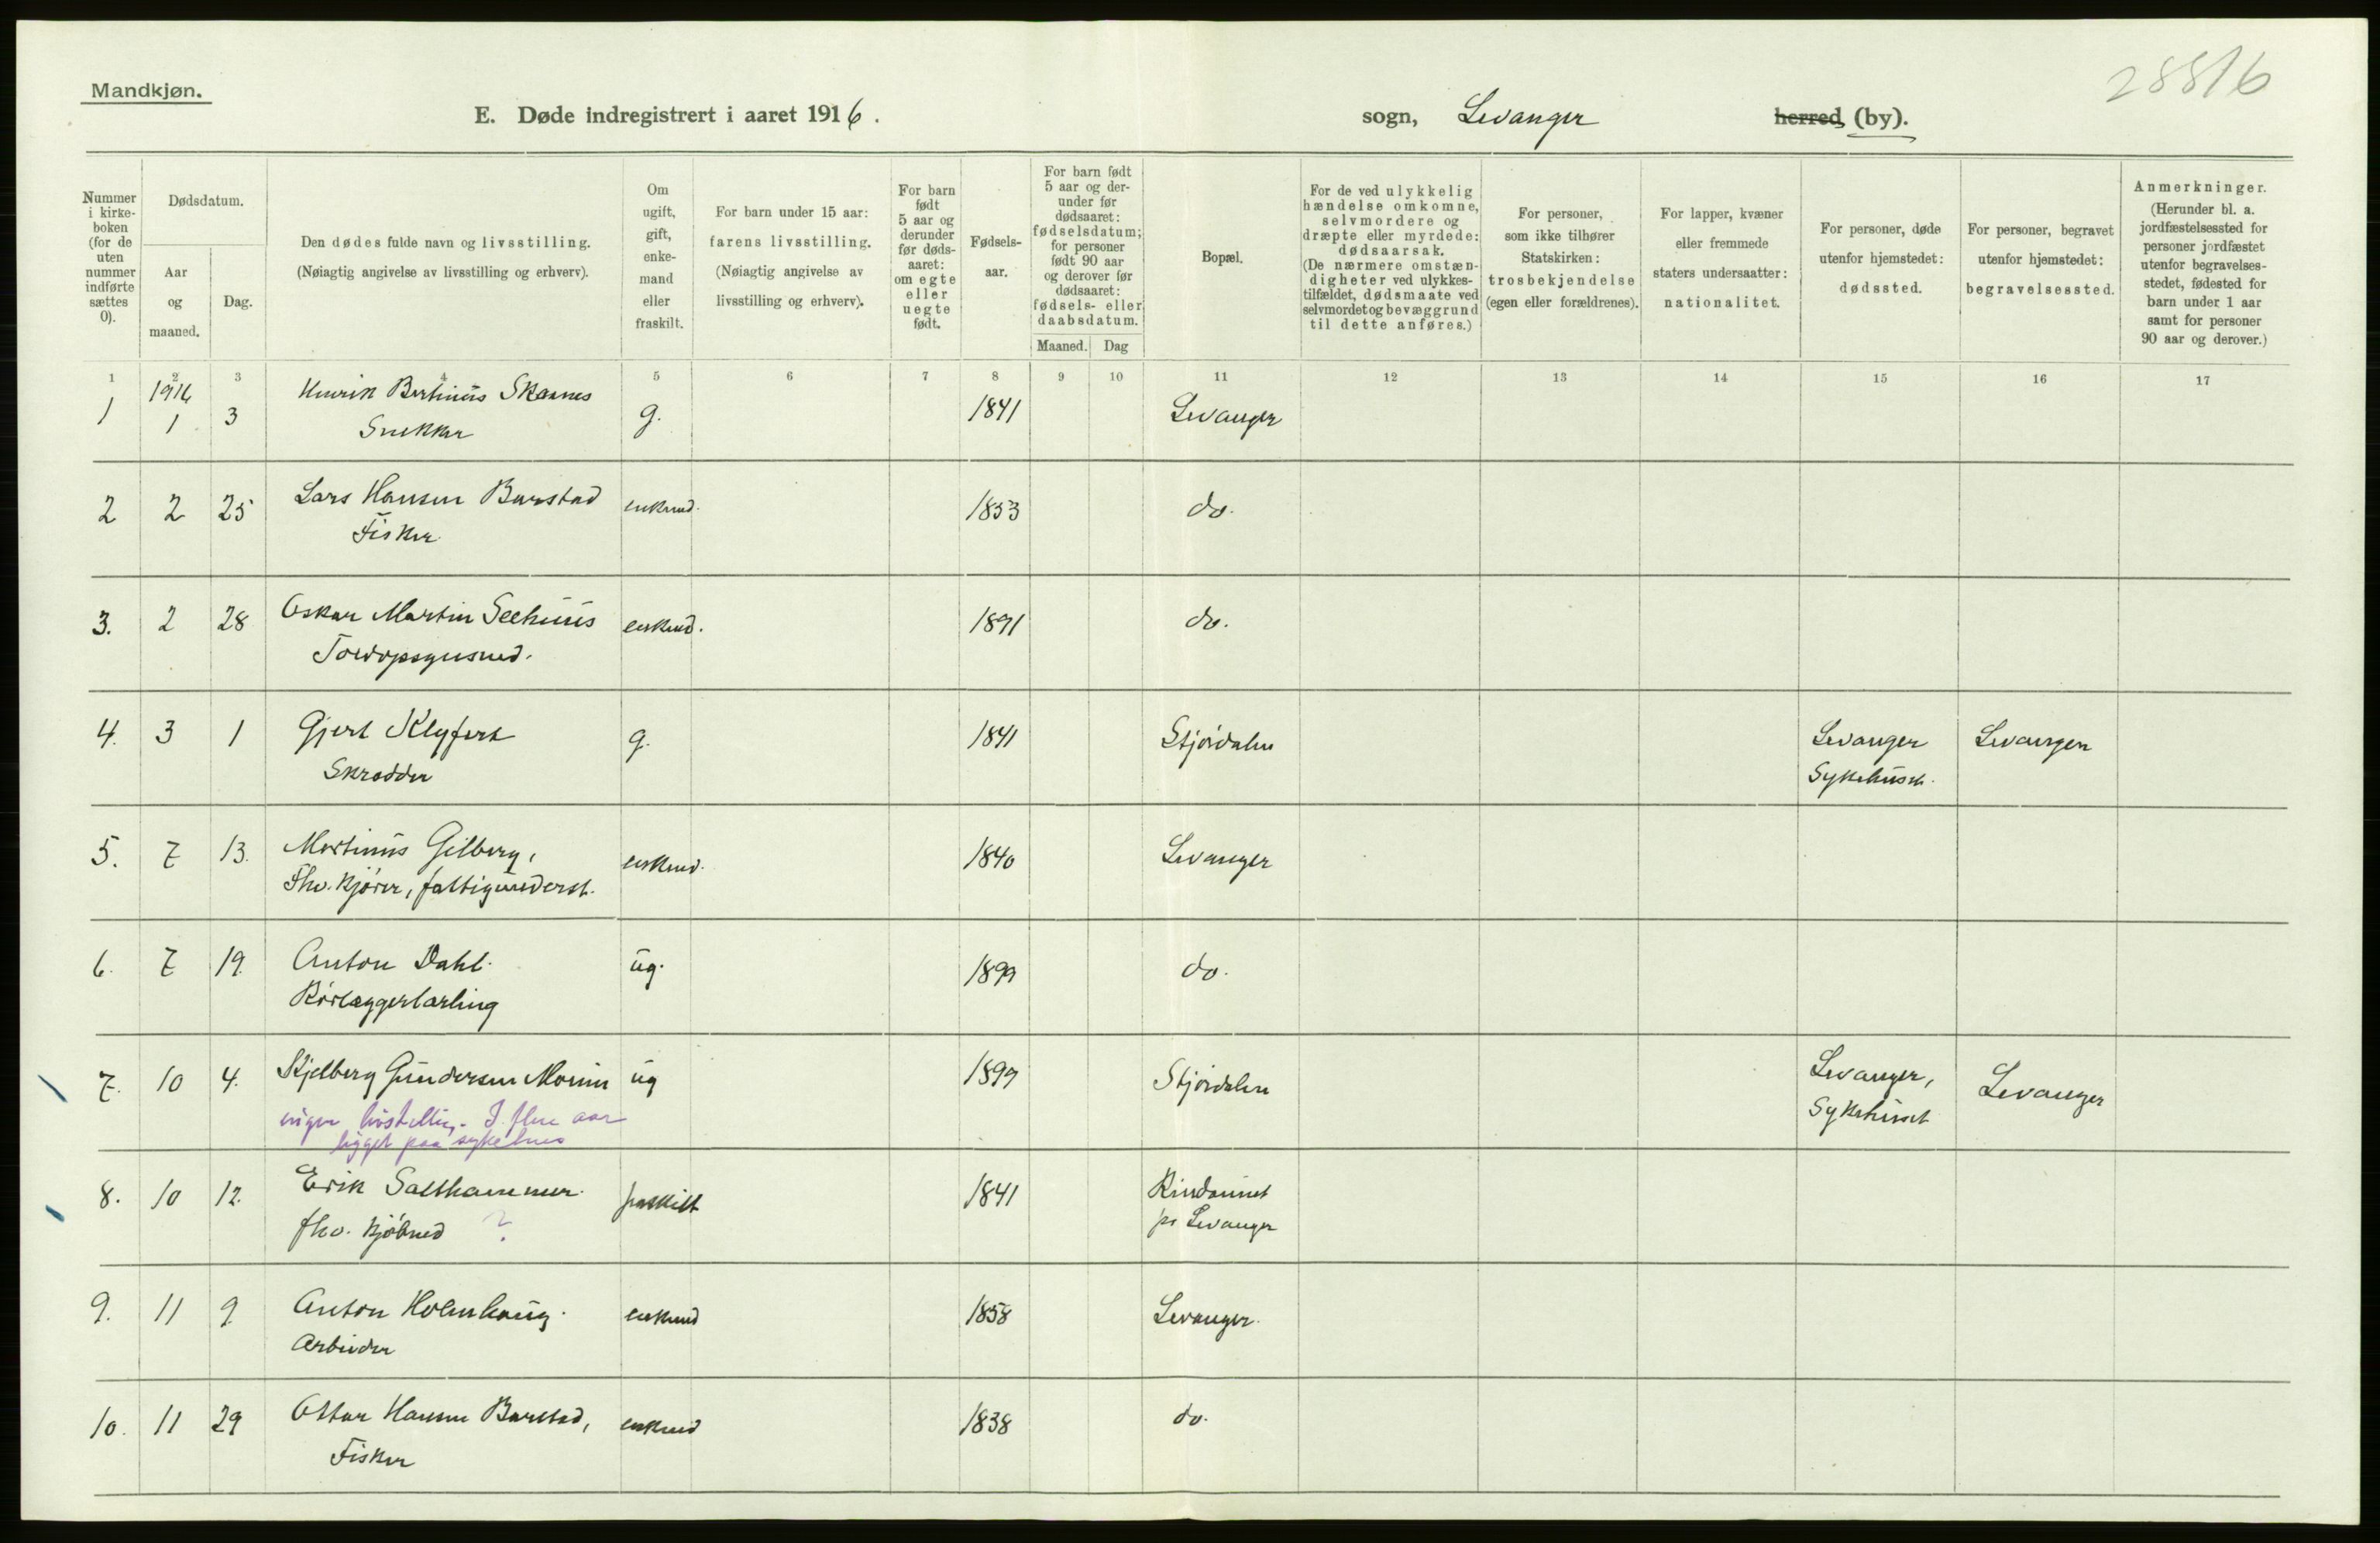 28816
Mandkjøn.
E. Døde indregistrert i aaret 1916.
sogn, Levanger herred (by).
Nummer i kirkeboken (for de uten nummer indførte sættes 0).
Dødsdatum.
Aar og maaned.
Dag.
Den dødes fulde navn og livsstilling.
(Nøiagtig angivelse av livsstilling og erhverv).
Om ugift, gift, enkemand eller fraskilt.
For barn under 15 aar: farens livsstilling.
(Nøiagtig angivelse av livsstilling og erhverv).
For barn født 5 aar og derunder før dødsaaret: om egte eller uegte født.
Fødselsaar.
For barn født 5 aar og derunder før dødsaaret: fødselsdatum; for personer født 90 aar og derover før dødsaaret: fødsels- eller daabsdatum.
Maaned. Dag
Bopæl.
For de ved ulykkelig hændelse omkomne, selvmordere og dræpte eller myrdede: dødsaarsak.
(De nærmere omstændigheter ved ulykkestilfældet, dødsmaate ved selvmordet og bevæggrund til dette anføres.)
For personer, som ikke tilhører Statskirken: trosbekjendelse (egen eller forældrenes).
For lapper, kvæner eller fremmede staters undersaatter: nationalitet.
For personer, døde utenfor hjemstedet: dødssted.
For personer, begravet utenfor hjemstedet: begravelsessted.
Anmerkninger.
(Herunder bl. a. jordfæstelsessted for personer jordfæstet utenfor begravelsesstedet, fødested for barn under 1 aar samt for personer 90 aar og derover.)
1 2 3 4 5 6 7 8 9 10 11 12 13 14 15 16 17
1916
1 1 3 Henrik Bertinus Skaanes g. 1841 Levanger
Snekker
2 2 25 Lars Hansen Borstad enkemd. 1853 do.
Fisker
3. 2 28 Oskar Martin Seehuus enkemd. 1891 do.
4. 3 1 Gjert Klyfert g. 1841 Stjørdalen Levanger Levanger
Skrædder Sykehuset.
5. 7 13. Martinus Gilberg, enkemd. 1840 Levanger
Fhv. kjører, fattigunderst.
6. 7 19. Anton Dahl. ug. 1899 do.
Rørlæggerlærling
7. 10 4. Kjelberg Gundersen ug 1899 Stjørdalen Levanger, Levanger
Sykehuset
ingen livsstilling. I flere aar
ligget paa sykehus
8. 10 12. Erik Salthammer. fraskilt 1841 Rindannet
fhv. kjøbmd ? pr Levanger
9. 11 9 Anton Holmhaug. enkemd 1858 Levanger.
Arbeider
10. 11 29 Ottar Hansen Borstad, enkemd 1838 do.
Fisker